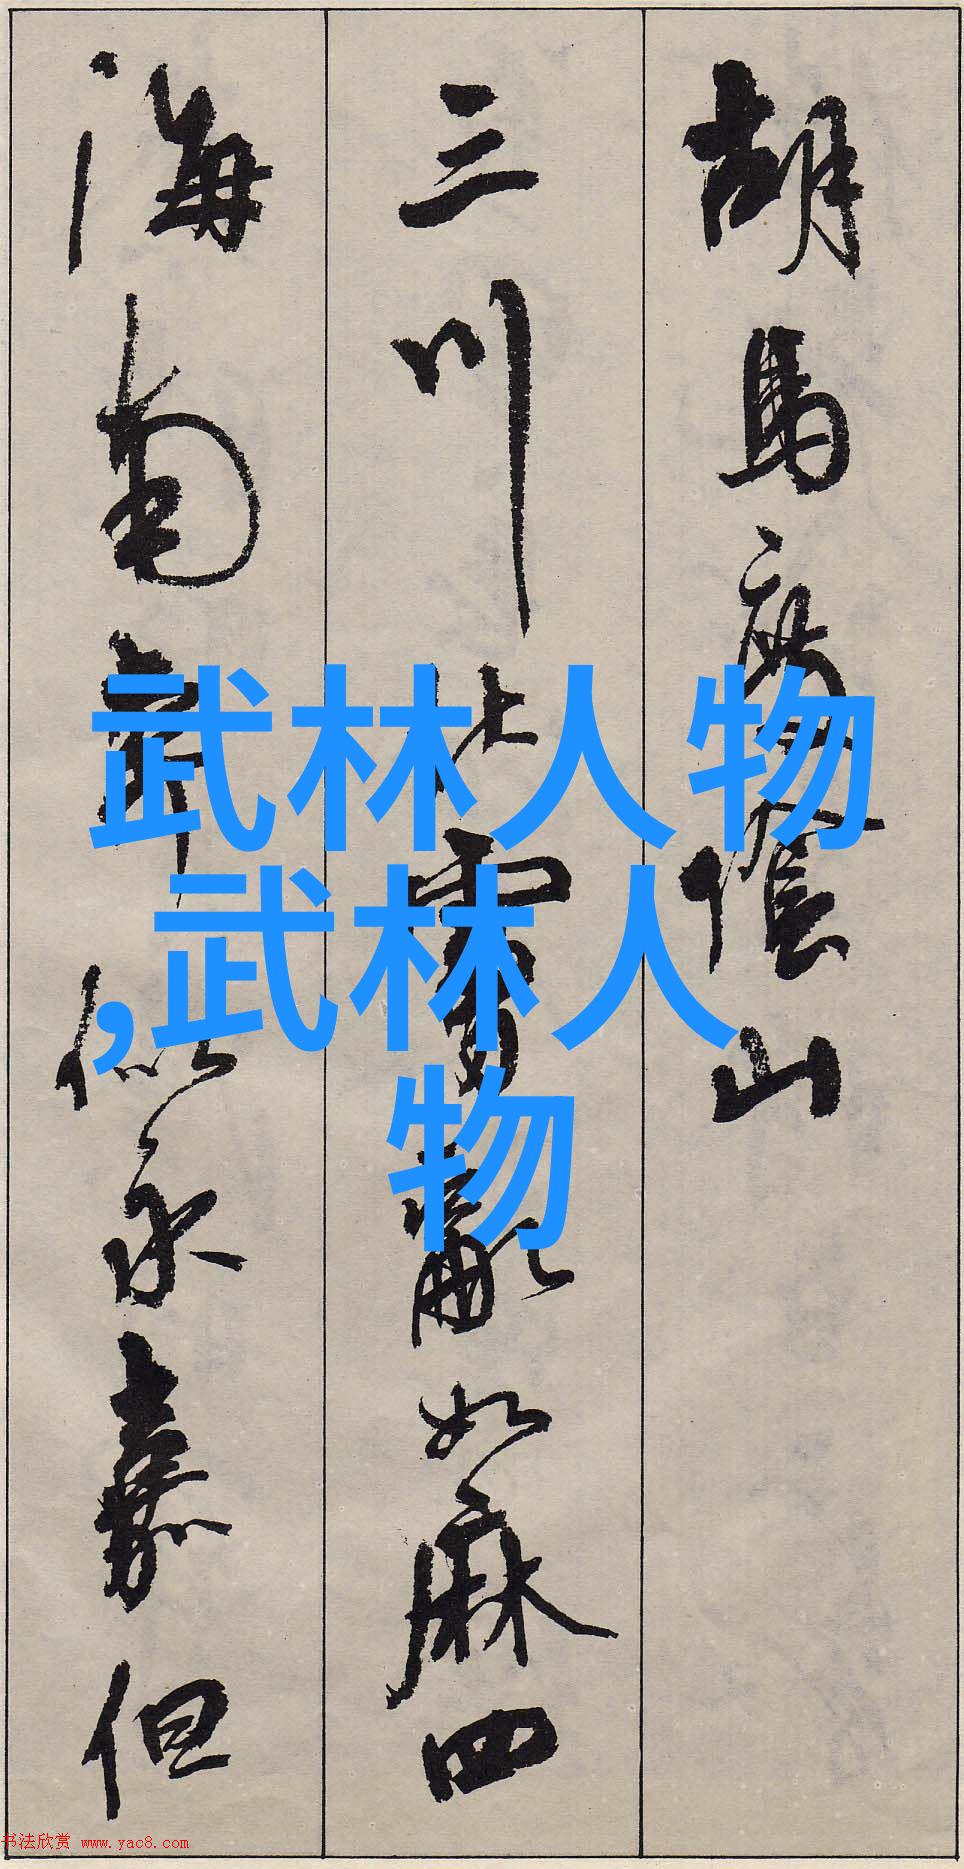 胡馬度陰山
三川北虜亂如麻四
海南奔似永嘉但
武林人物
,武林人
物
书法欣赏 www.yac8.com